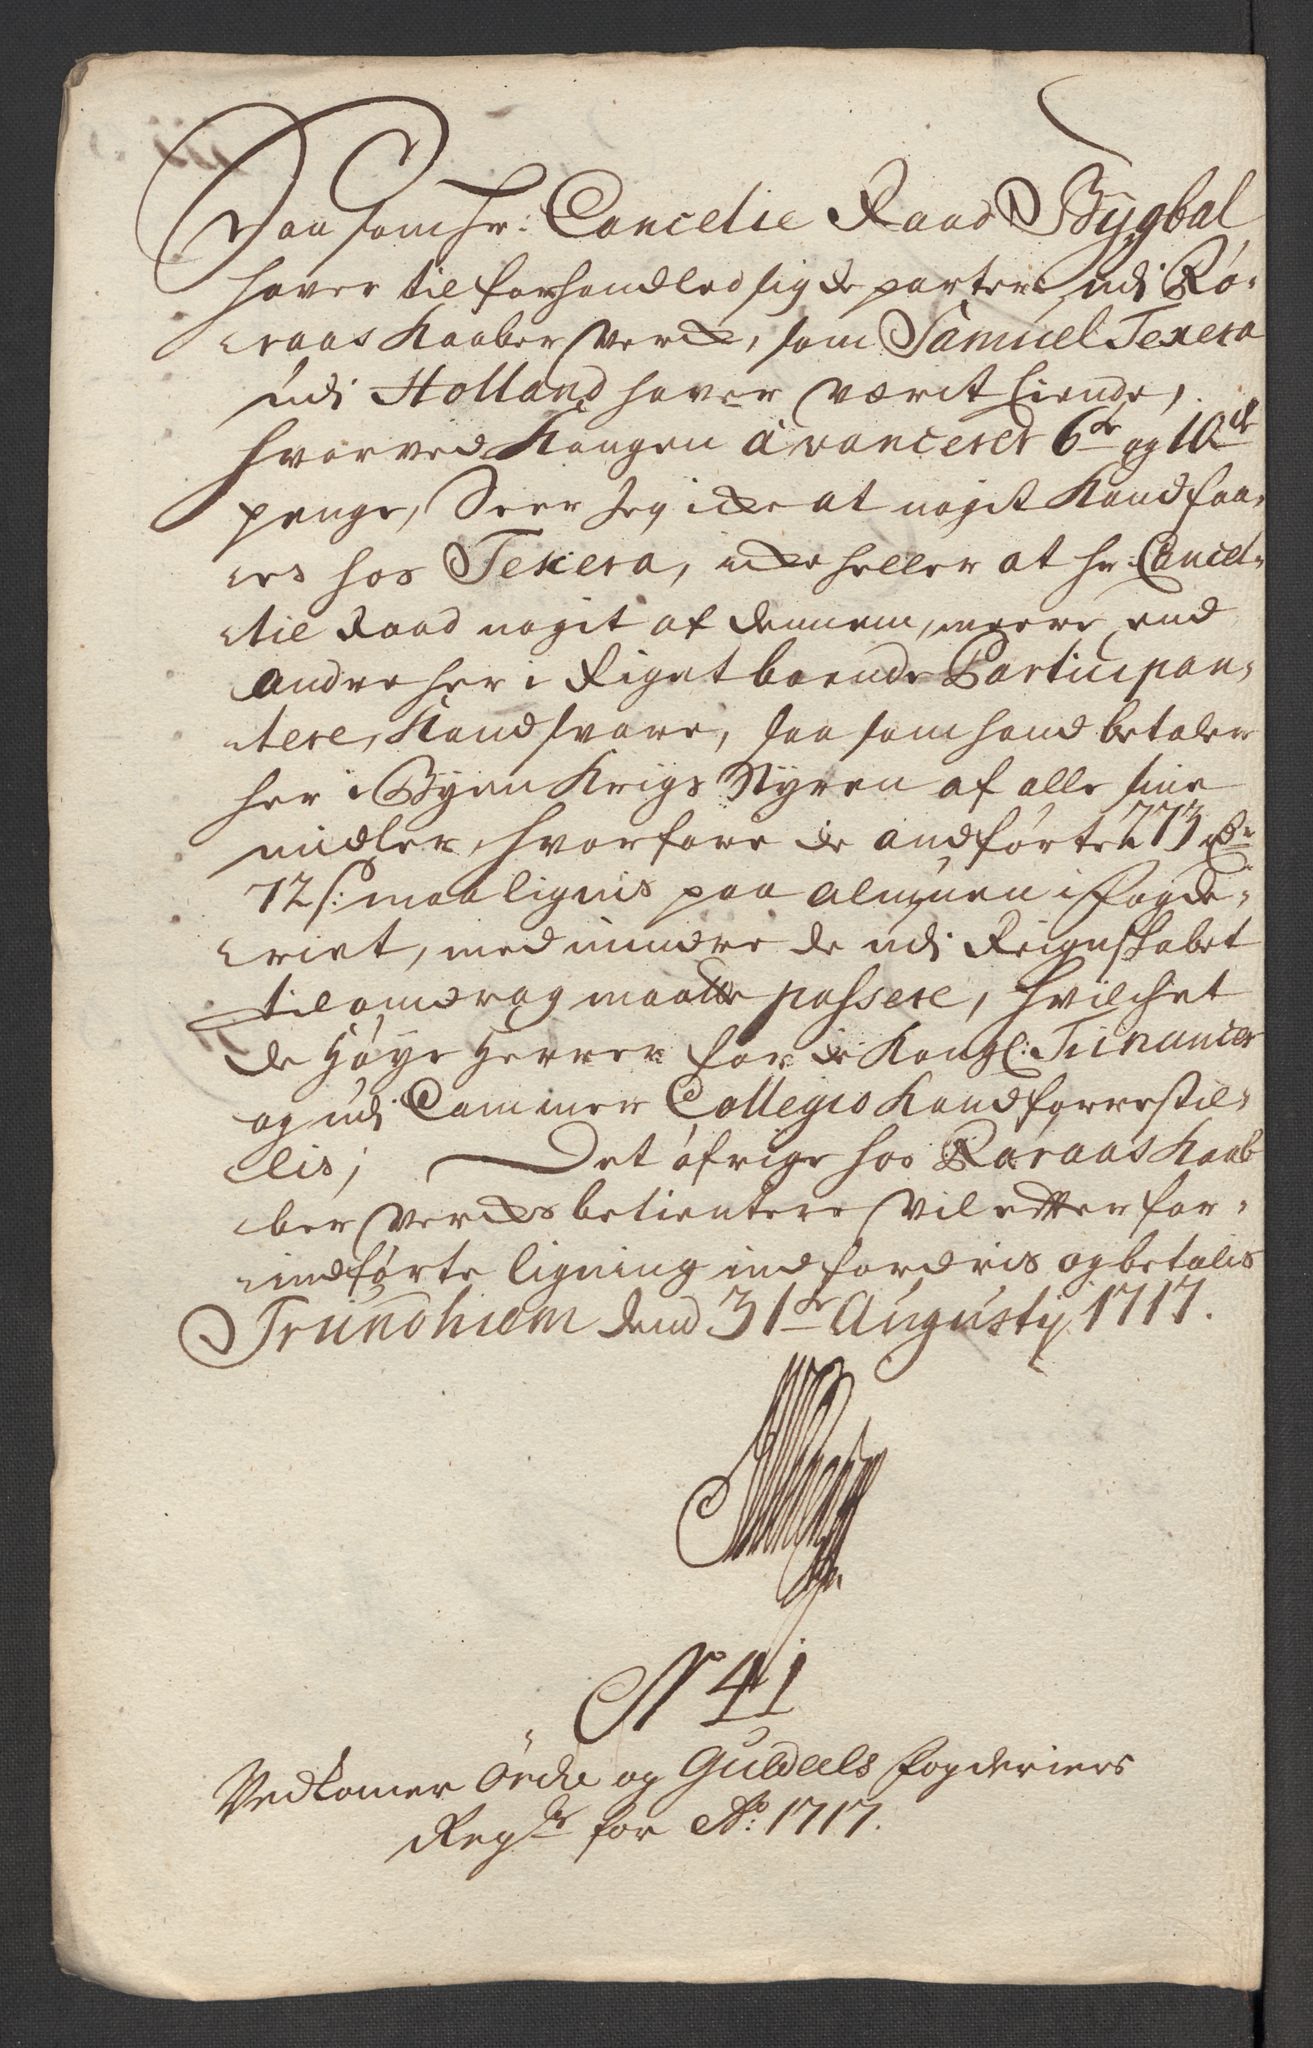 Saasom Hr: Cancelie Raad Bygbal
haver tilforhandled sig de parter udi Rø-
raas Kaaber Verck, som Samuel Texera
udi Holland haver værit Eiende,
hvorved Kongen avanceret 6te og 10de
penge, Seer Jeg icke at noget kand faa-
es hos Texera, icke heller at Hr: Cancel-
lie Raad noget af dennem, meere end
andre her i Riget boende Participan-
tere, kand svare, saa som hand betaler
her i Byen Krigs Styren af alle sine
midler, hvorfore de anførte 273 Rdr
72 s: maa lignis paa Almuen i Fogde-
riet, med mindre de udi Reignskabet
til omdrag maatte passere, hvilchet
de Høye Herrer for de Kongl: Finantzer
og udi Cammer Collegio kand forrestil-
lis; Det øfrige hos Røraas Kaab
ber Vercks betientere vil efter for-
indførte ligning indfordris og betalis
Trundhiem dend 31te Augusty 1717.
No 41
Vedkomer Orcke og Guldals fogderiers
Regsk for Ao: 1717.